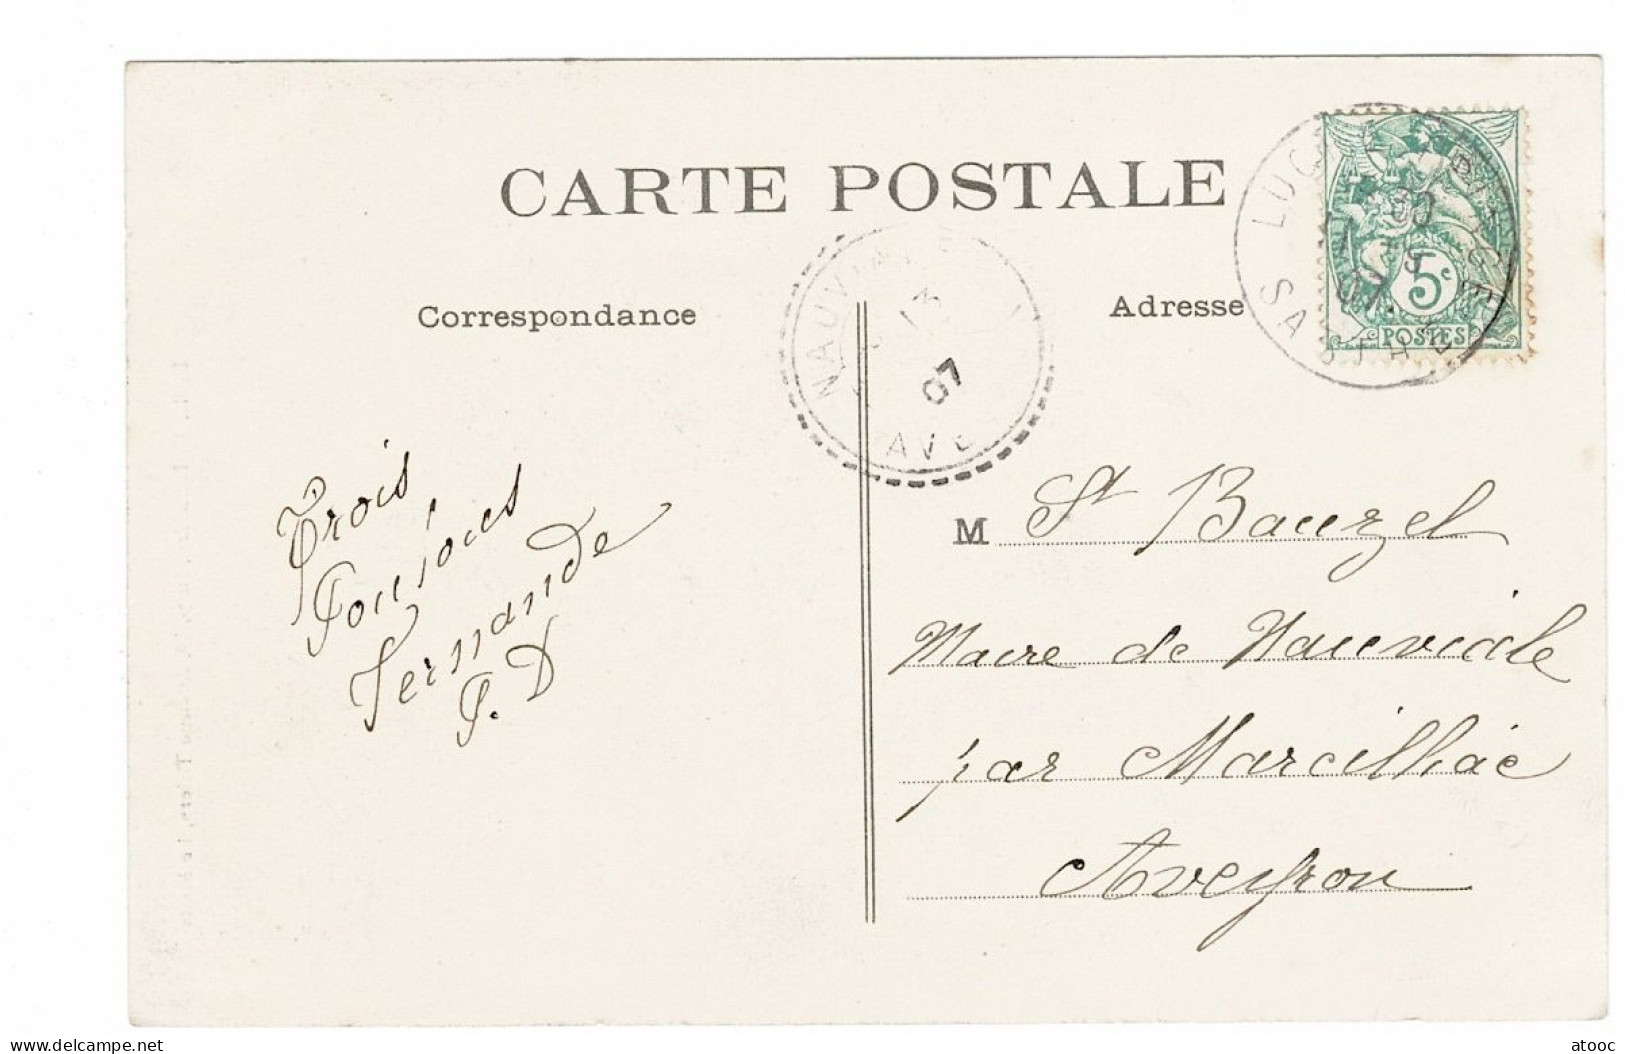 CARTE POSTALE
Correspondance
Adresse
NAUVIALE
13
07
AVE
LUCHÉ
SARTHE
07
5c
POSTES
Trois
Fernande
P. D
M St Bauzel
Maire de Nauviale
par Marcillac
Aveyron
www.delcampe.net
atooc